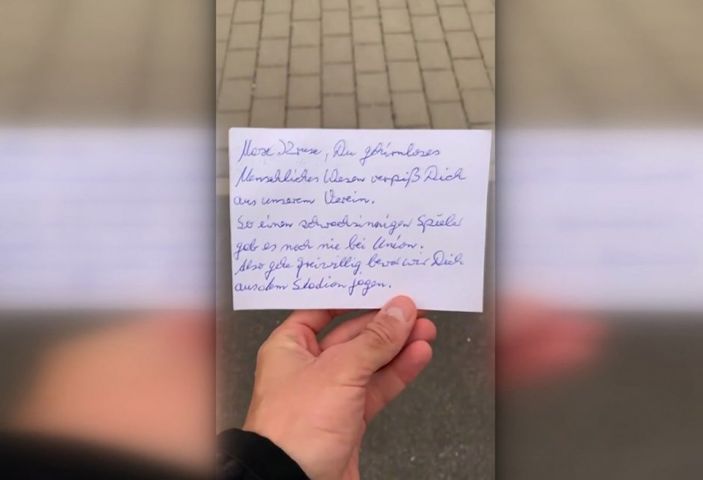 Max Kruse, Du gehirnloses
Menschliches Wesen verpiß Dich
aus unserem Verein.
So einen schwachsinnigen Spieler
gab es noch nie bei Union.
Also gehe freiwillig bevor wir Dich
aus dem Stadion jagen.